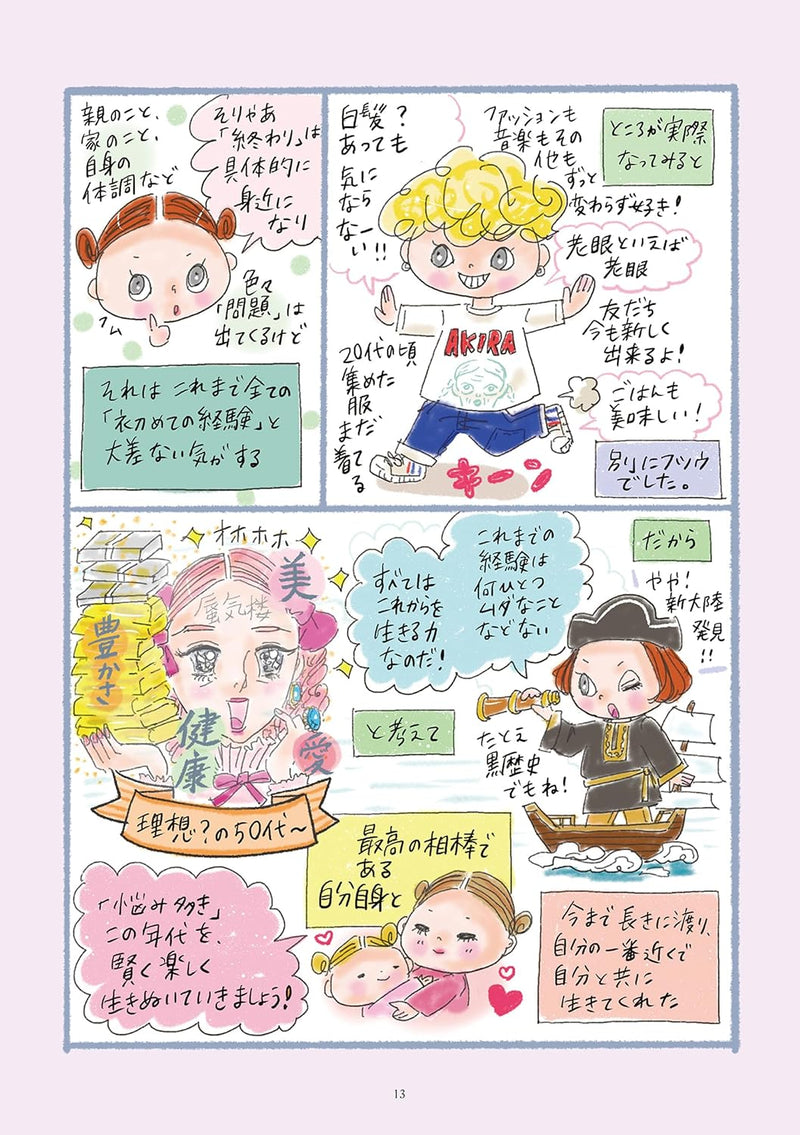 ところが実際
なってみると
ファッションも
音楽もその
他も
ずっと
変わらず好き！
白髪？
あっても
気に
なら
なー
い！！
老眼といえば
老眼
友だち
今も新しく
出来るよ！
AKIRA
20代の頃
集めた
服
まだ
着てる
ごはんも
美味しい！
キーン
別にフツウ
でした。
そりゃあ
「終わり」は
具体的に
身近に
なり
親のこと、
家のこと、
自身の
体調など
フム
色々
「問題」は
出てくるけど
それは これまで全ての
「初めての経験」と
大差ない気がする
だから
やや！
新大陸
発見
！！
これまでの
経験は
何ひとつ
ムダなこと
などない
すべては
これからを
生きる力
なのだ！
たとえ
黒歴史
でもね！
と考えて
オホホホ
美
蜃気楼
豊かさ
健康
愛
理想？の50代〜
今まで長きに渡り、
自分の一番近くで
自分と共に
生きてくれた
最高の相棒で
ある
自分自身と
「悩み多き」
この年代を、
賢く楽しく
生きぬいていきましょう！
13